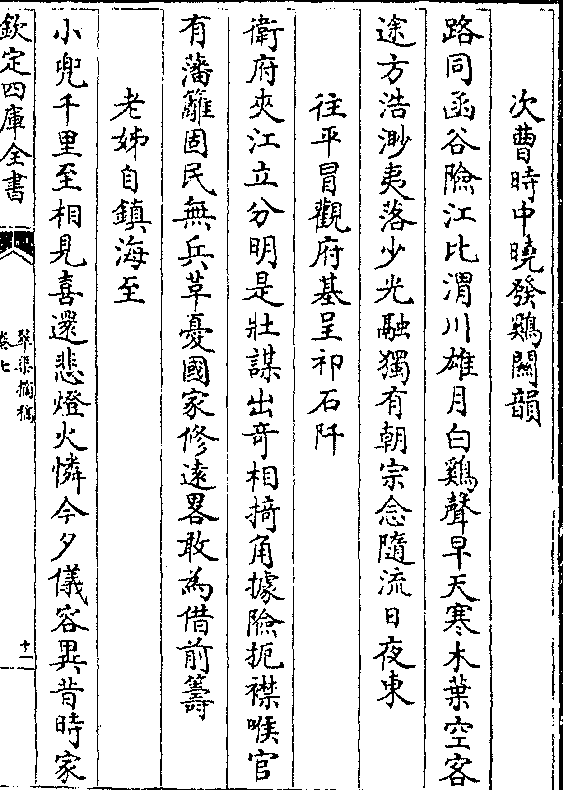 次曹時中曉發鷄闗韻
路同函谷險江比渭川雄月白鷄聲早天寒木葉空客
途方浩渺夷落少光融獨有朝宗念隨流日夜東
往平冒觀府基呈祁石阡
衛府夾江立分明是壯謀出竒相掎角據險扼襟喉官
有藩籬固民無兵草憂國家修遠畧敢為借前籌
老姊自鎮海至
小兜千里至相見喜還悲燈火憐今夕儀容異昔時家
欽定四庫全書
翠渠摘稿
卷七
十一